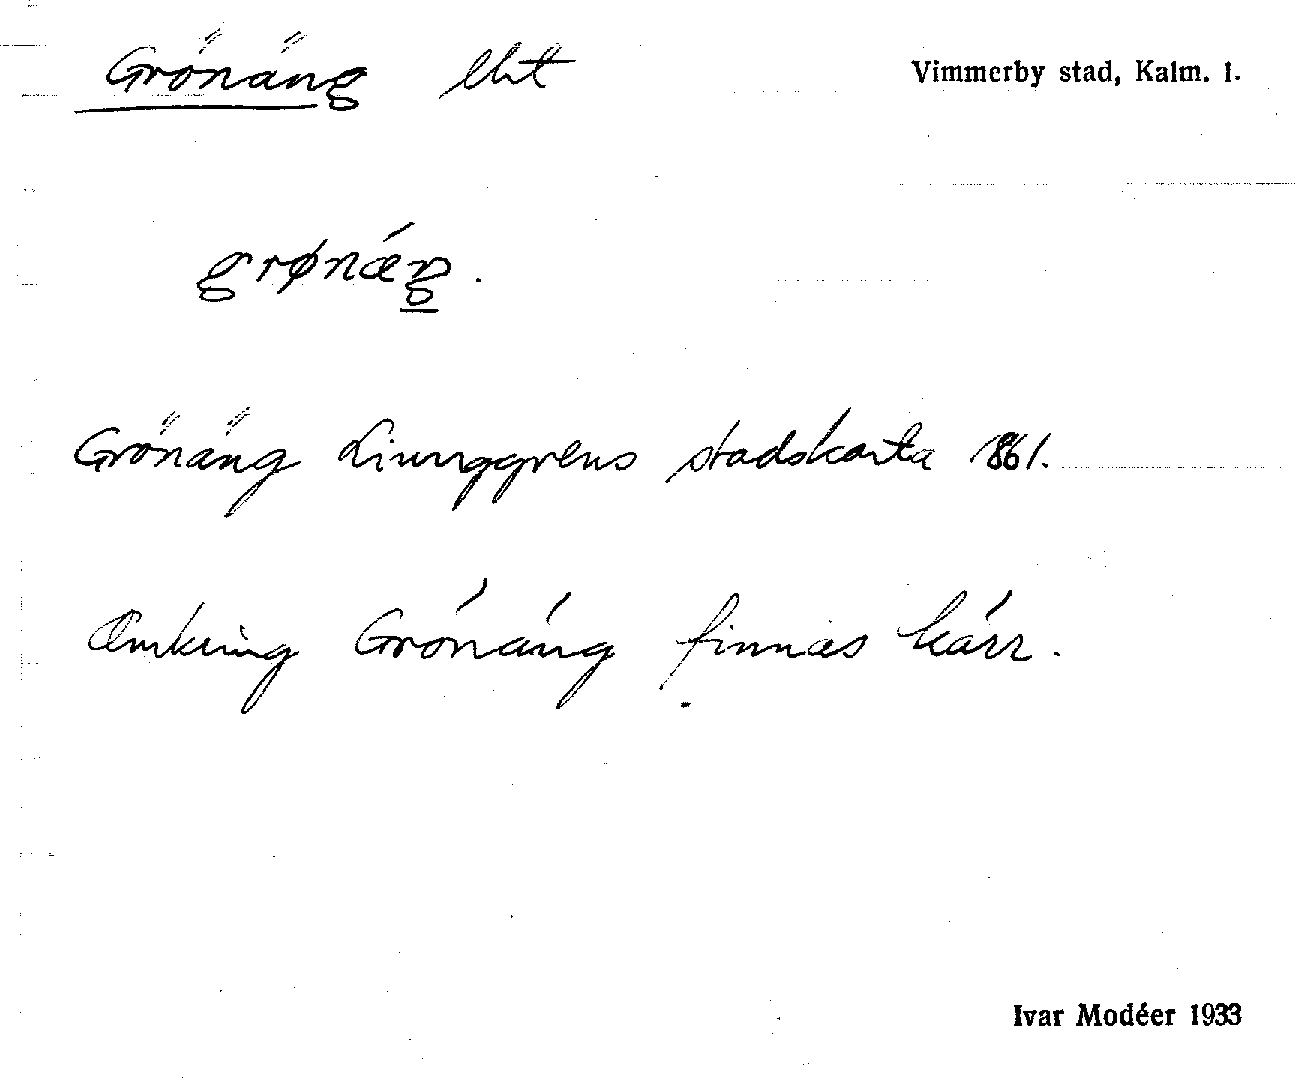 Grönäng lht Vimmerby stad, Kalm. l.
grønǽŋ.
Grönäng Liunggrens stadskarta 1861.
Omkring Grönäng finnas kärr.
Ivar Modéer 1933